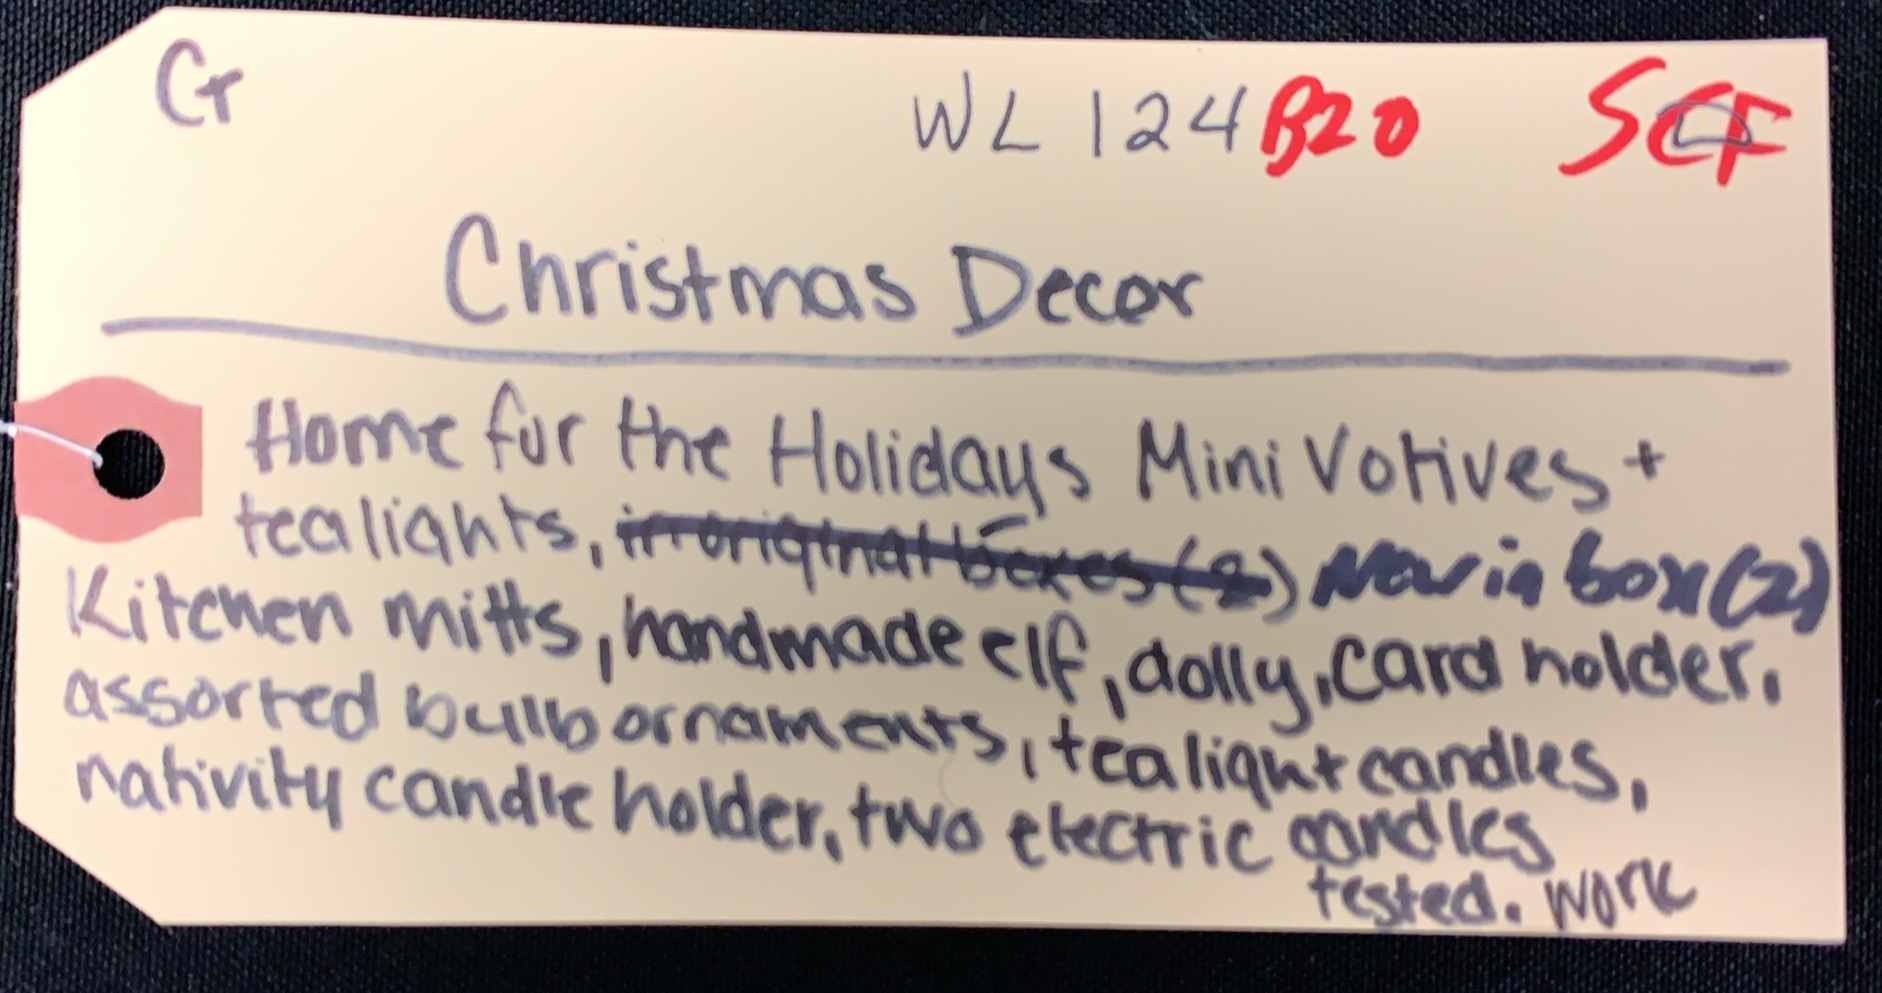 Cr WL 124 B20 SCF
Christmas Decor
Home for the Holidays Mini Votives +
tealights, in original boxes (2) New in box (2)
Kitchen mitts, handmade elf, dolly, card holder,
assorted bulb ornaments, tealight candles,
nativity candle holder, two electric candles
tested. work